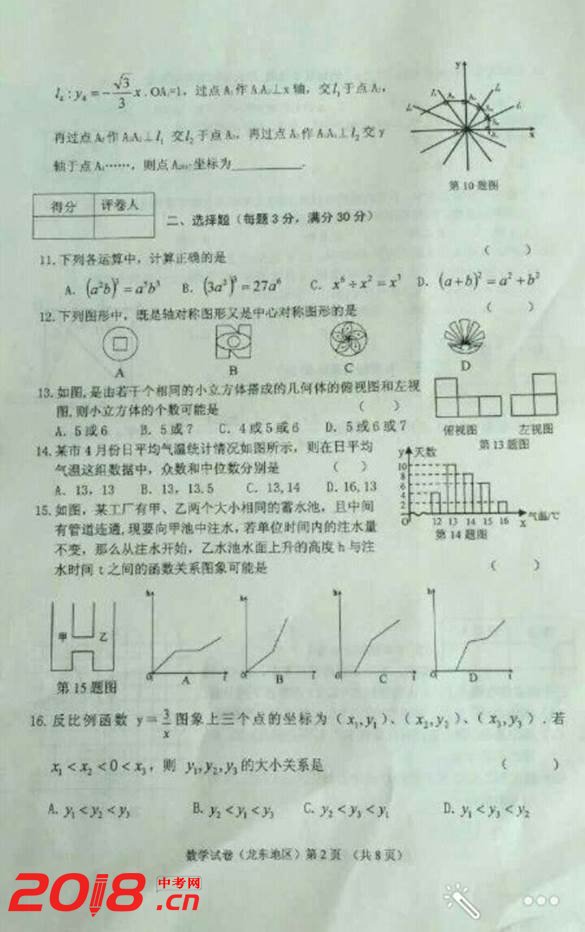 l₄:y₄=-√3/3 x.OA₁=1，过点A₁作A₁A₂⊥x轴，交l₁于点A₂，
再过点A₂作A₂A₃⊥l₁ 交l₂于点A₃，再过点A₃作A₃A₄⊥l₂交y
轴于点A₄……，则点 坐标为________.
第10题图
得分 评卷人
二、选择题（每题3分，满分30分）
11.下列各运算中，计算正确的是 （ ）
A. B. (3a²)³=27a⁶ C. x⁶÷x²=x³ D. (a+b)²=a²+b²
12.下列图形中，既是轴对称图形又是中心对称图形的是 （ ）
A B C D
13.如图,是由若干个相同的小立方体搭成的几何体的俯视图和左视
图,则小立方体的个数可能是 （ ）
A. 5或6 B. 5或7 C. 4或5或6 D. 5或6或7
俯视图 左视图
第13题图
14.某市4月份日平均气温统计情况如图所示，则在日平均
气温这组数据中，众数和中位数分别是 （ ）
A. 13, 13 B. 13, 13.5 C. 13,14 D. 16,13
y 天数
10
8
6
4
2
O 12 13 14 15 16 x 气温/℃
第14题图
15.如图，某工厂有甲、乙两个大小相同的蓄水池，且中间
有管道连通,现要向甲池中注水,若单位时间内的注水量
不变，那么从注水开始，乙水池水面上升的高度h与注
水时间t之间的函数关系图象可能是 （ ）
甲 乙
第15题图
A B C D
16.反比例函数 y=3/x 图象上三个点的坐标为（x₁,y₁）、（x₂,y₂）、（x₃,y₃）.若
x₁<x₂<0<x₃，则 y₁,y₂,y₃的大小关系是 （ ）
A. y₁<y₂<y₃ B. y₂<y₁<y₃ C. y₂<y₃<y₁ D. y₁<y₃<y₂
数学试卷（龙东地区）第2页 （共8页）
2018中考网.cn